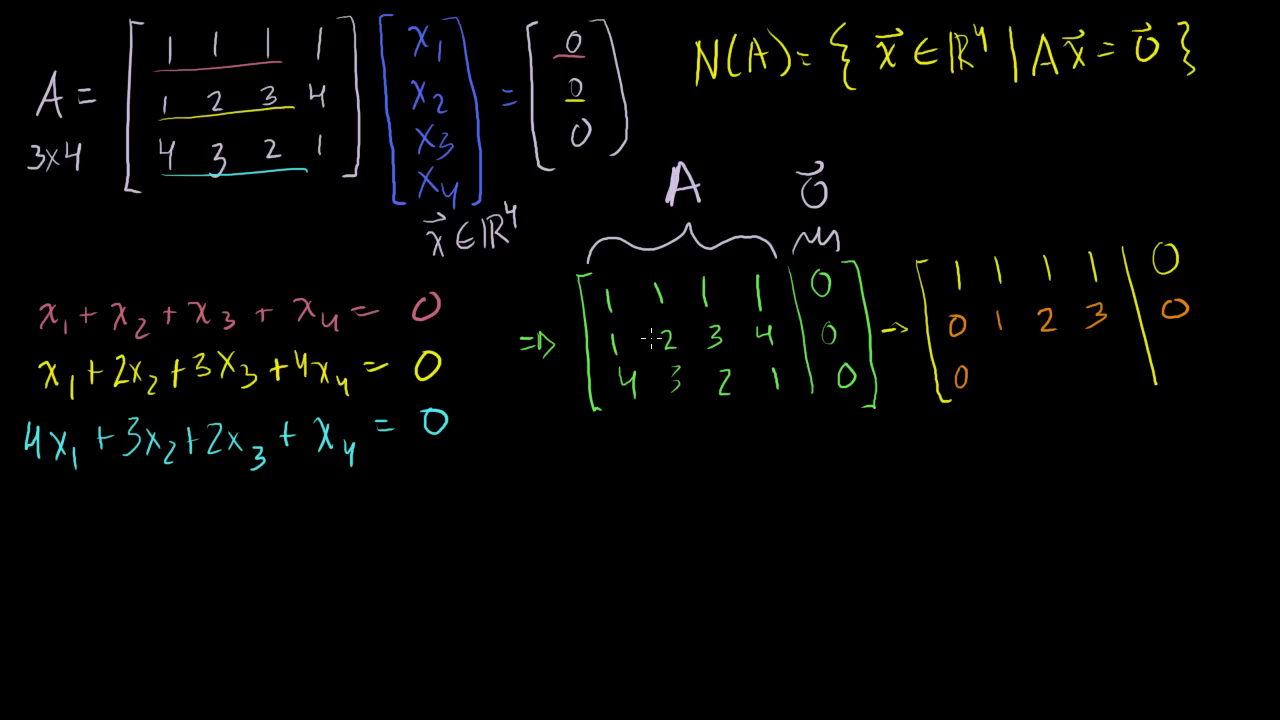 A = [1 1 1 1; 1 2 3 4; 4 3 2 1] [x₁; x₂; x₃; x₄] = [0; 0; 0]
3x4
x⃗ ∈ ℝ⁴
N(A) = { x⃗ ∈ ℝ⁴ | Ax⃗ = 0⃗ }
x₁ + x₂ + x₃ + x₄ = 0
x₁ + 2x₂ + 3x₃ + 4x₄ = 0
4x₁ + 3x₂ + 2x₃ + x₄ = 0
A 0⃗
⇒ [1 1 1 1 | 0; 1 2 3 4 | 0; 4 3 2 1 | 0] → [1 1 1 1 | 0; 0 1 2 3 | 0; 0 |